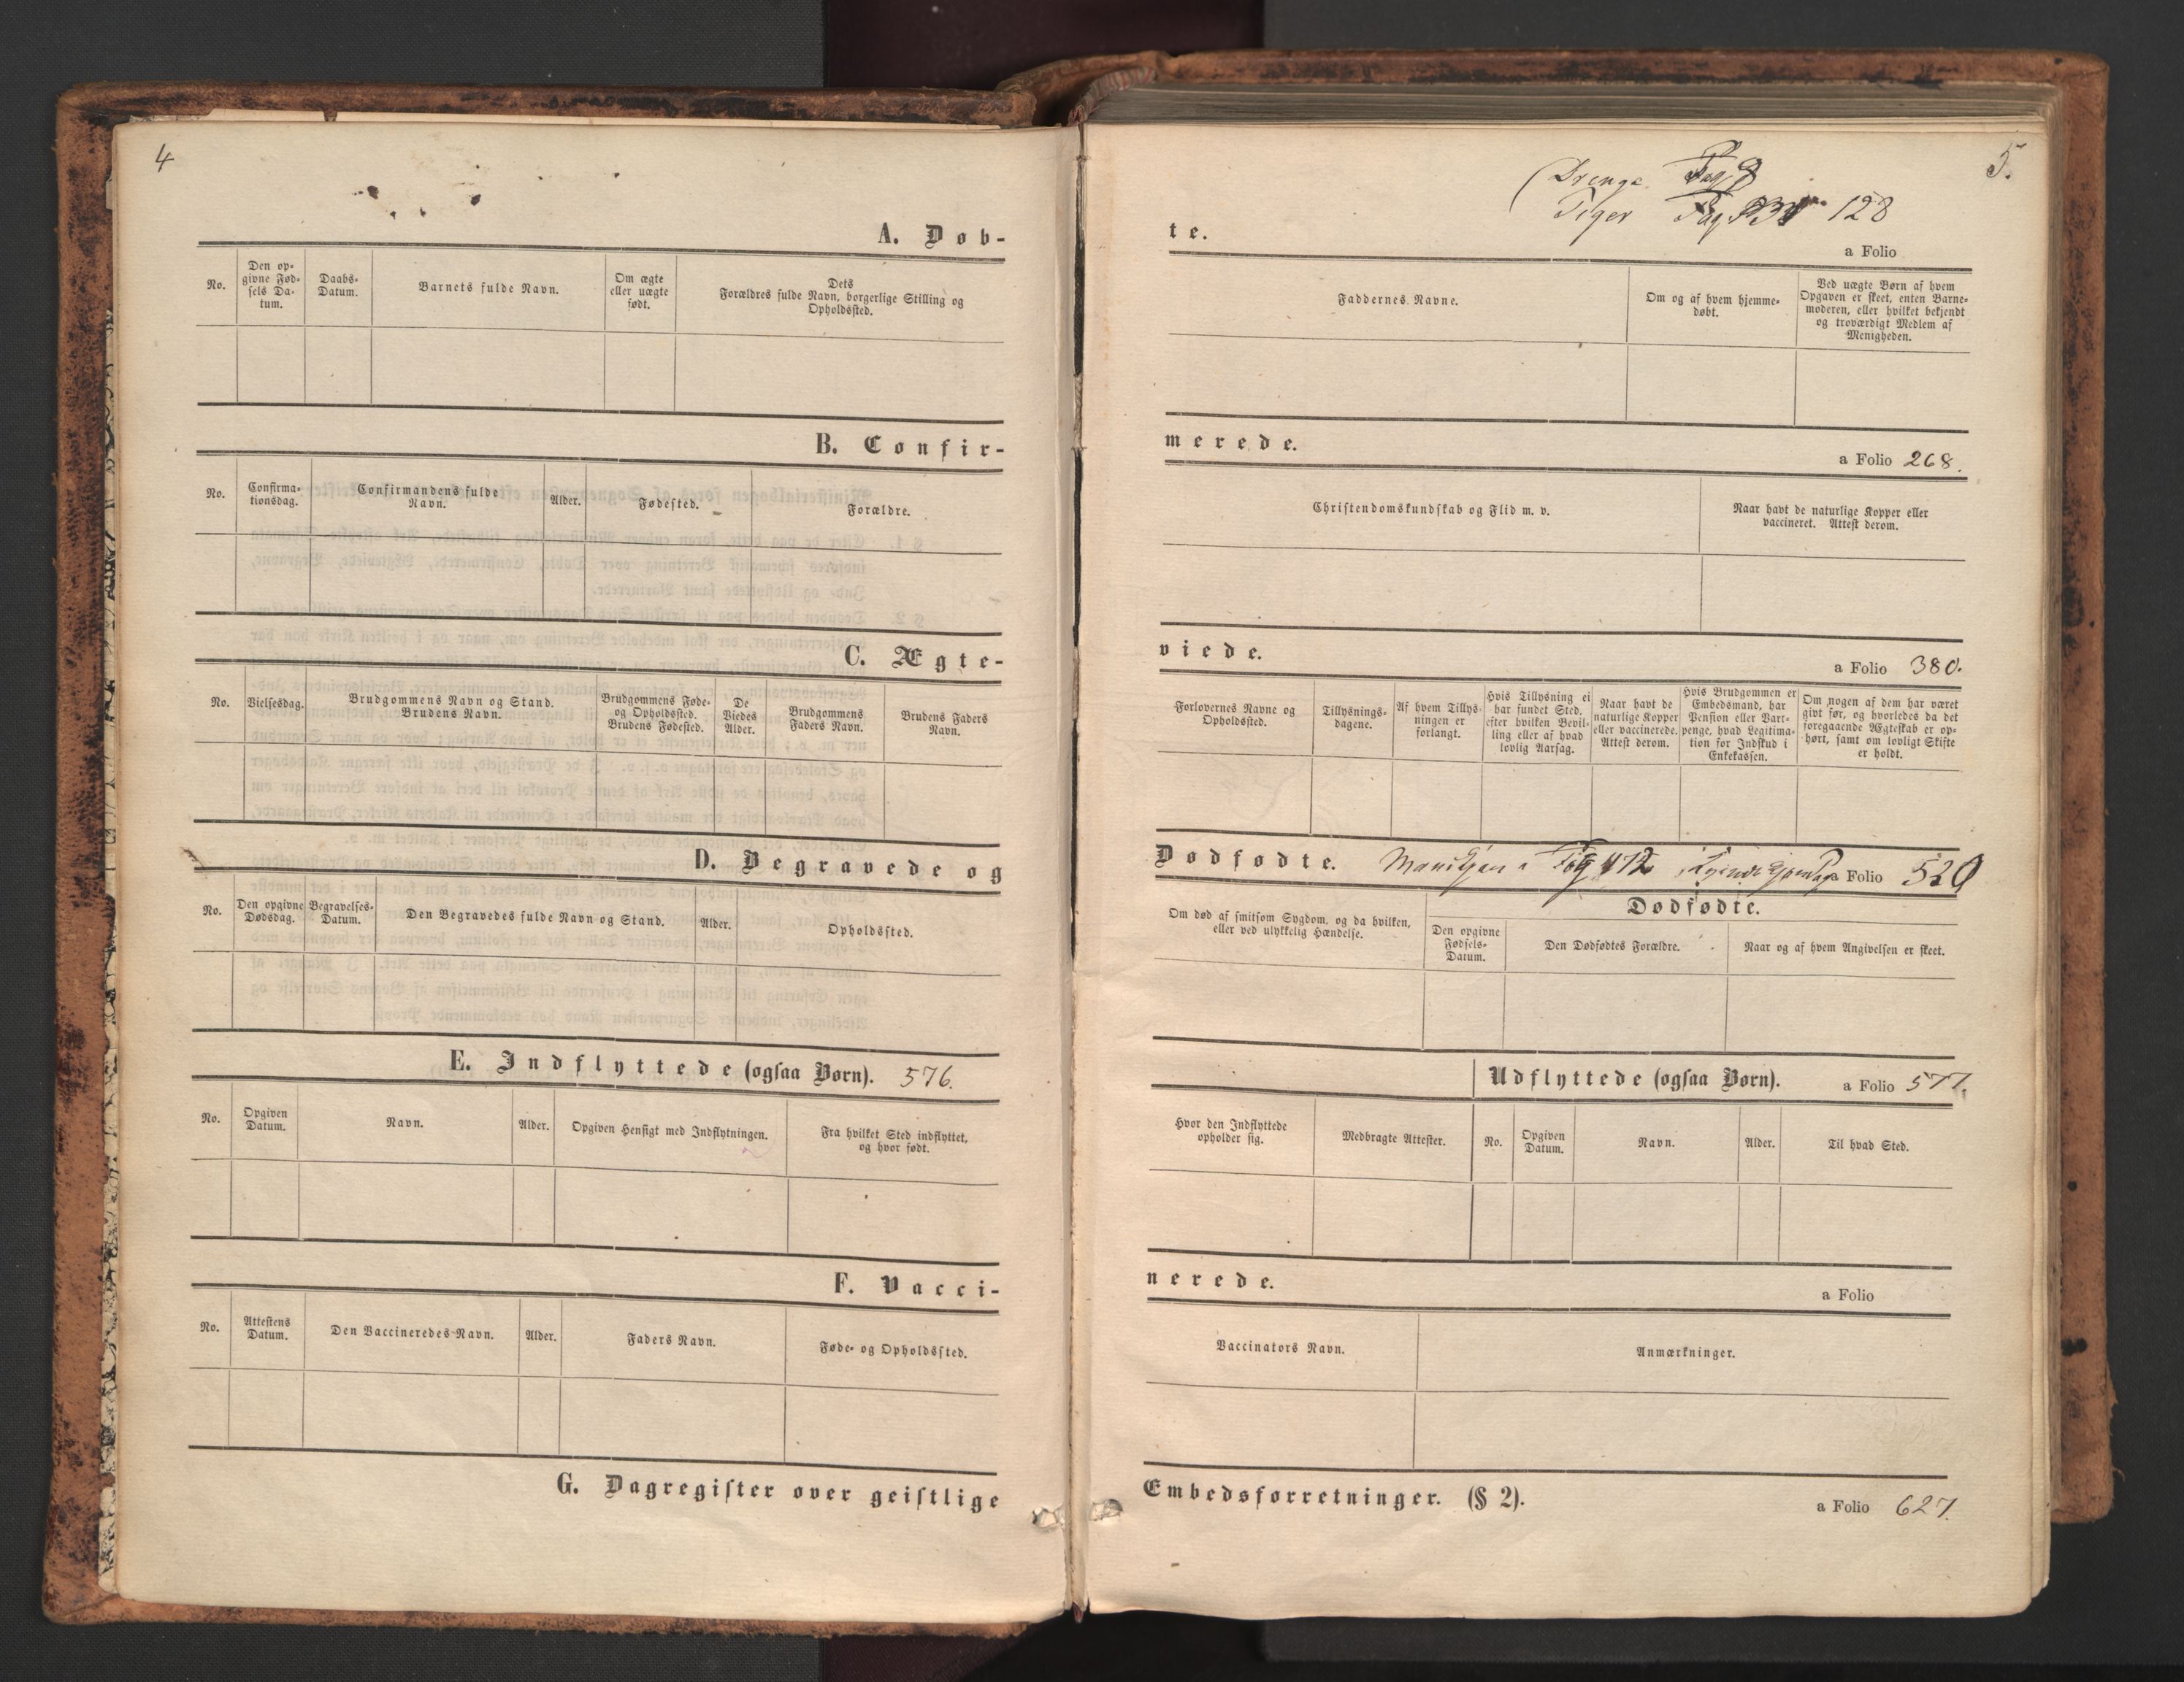 4
A. Døb-
No.
Den op-
givne Fød-
sels Da-
tum.
Daabs-
Datum.
Barnets fulde Navn.
Om ægte
eller uægte
født.
Dets
Forældres fulde Navn, borgerlige Stilling og
Opholdssted.
B. Confir-
No.
Confirma-
tionsdag.
Confirmandens fulde
Navn.
Alder.
Fødested.
Forældre.
C. Ægte-
No.
Vielsesdag.
Brudgommens Navn og Stand.
Brudens Navn.
Brudgommens Føde-
og Opholdssted.
Brudens Fødested.
De
Viedes
Alder.
Brudgommens
Faders Navn.
Brudens Faders
Navn.
D. Begravede og
No.
Den opgivne
Dødsdag.
Begravelses-
Datum.
Den Begravedes fulde Navn og Stand.
Alder.
Opholdssted.
E. Indflyttede (ogsaa Børn). 576.
No.
Opgiven
Datum.
Navn.
Alder.
Opgiven Hensigt med Indflytningen.
Fra hvilket Sted indflyttet,
og hvor født.
F. Vacci-
No.
Attestens
Datum.
Den Vaccineredes Navn.
Alder.
Faders Navn.
Føde- og Opholdssted.
G. Dagregister over geistlige
5.
Drenge Pag 8
Piger Pag 128
te.
a Folio
Faddernes Navne.
Om og af hvem hjemme-
døbt.
Ved uægte Børn af hvem
Opgaven er skeet, enten Barne-
moderen, eller hvilket bekjendt
og troværdigt Medlem af
Menigheden.
merede.
a Folio 268.
Christendomskundskab og Flid m. v.
Naar havt de naturlige Kopper eller
vaccineret. Attest derom.
viede.
a Folio 380.
Forlovernes Navne og
Opholdssted.
Tillysnings-
dagene.
Af hvem Tillys-
ningen er
forlangt.
Hvis Tillysning ei
har fundet Sted,
efter hvilken Bevil-
ling eller af hvad
lovlig Aarsag.
Naar havt de
naturlige Kopper
eller vaccinerede.
Attest derom.
Hvis Brudgommen er
Embedsmand, har
Pension eller Vart-
penge, hvad Legitima-
tion for Indskud i
Enkekassen.
Om nogen af dem har været
givt før, og hvorledes da det
foregaaende Ægteskab er op-
hørt, samt om lovligt Skifte
er holdt.
Dødfødte. Mandkjøn Pag 412 Kvindekjøn Pag a Folio 520
Om død af smitsom Sygdom, og da hvilken,
eller ved ulykkelig Hændelse.
Dødfødte.
Den opgivne
Fødsels-
Datum.
Den Dødfødtes Forældre.
Naar og af hvem Angivelsen er skeet.
Udflyttede (ogsaa Børn).
a Folio 577.
Hvor den Indflyttede
opholder sig.
Medbragte Attester.
No.
Opgiven
Datum.
Navn.
Alder.
Til hvad Sted.
nerede.
a Folio
Vaccinators Navn.
Anmærkninger.
Embedsforretninger. (§ 2).
a Folio 627.